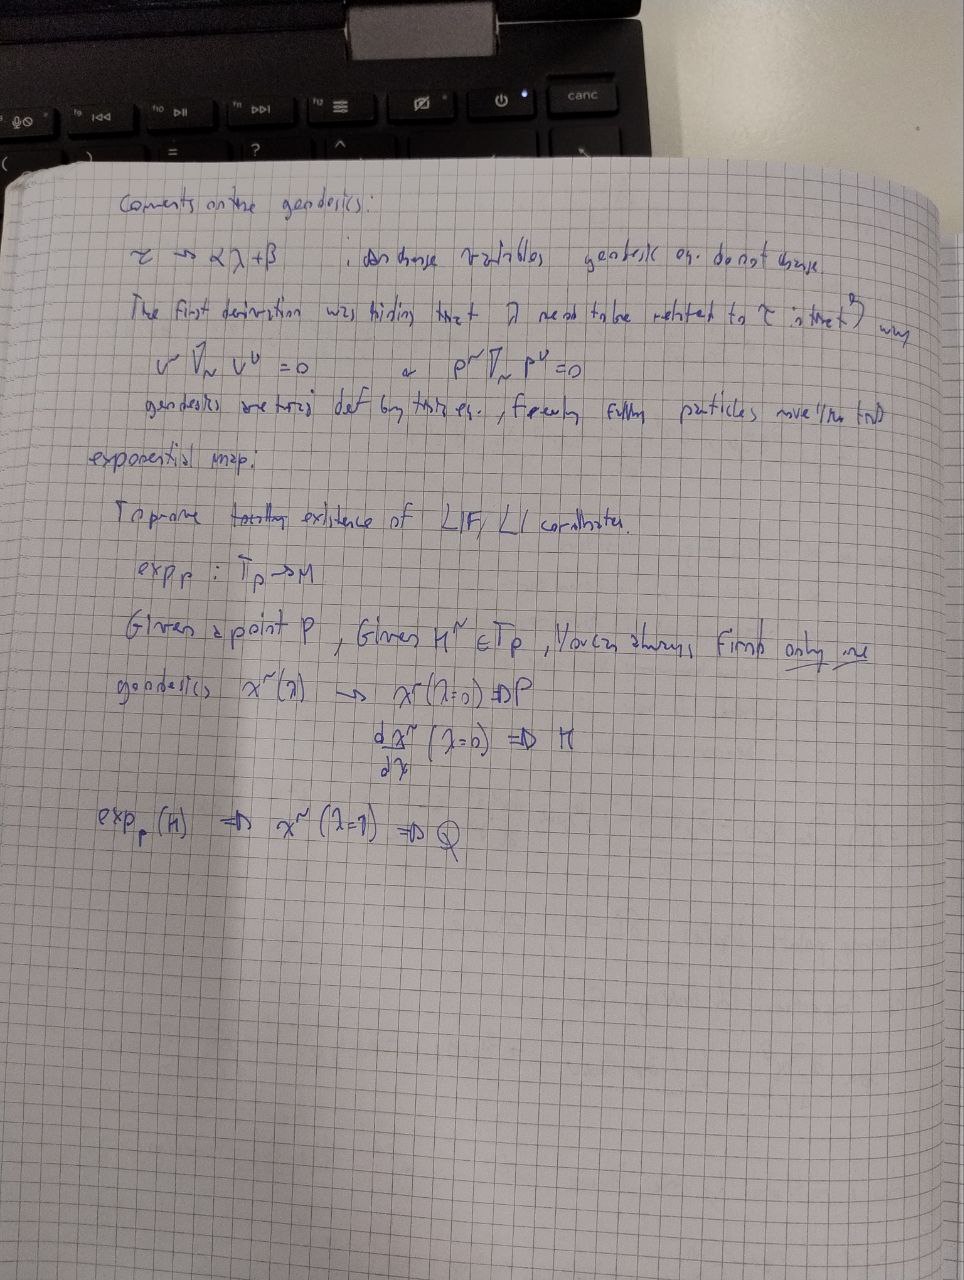 f9
f10
f11
f12
canc
(
)
=
?
^
Coments on the geodesics:
τ → αλ+β : change variables geodesic eq. do not change
The first derivation was hiding that λ need to be related to τ in that way
V^μ ∇_μ V^ν = 0 or P^μ ∇_μ P^ν = 0
geodesics def by this eq., freely particles move
exponential map:
To prove existence of LIF, LI
exp_p : T_p → M
Given a point P, Given K^μ ∈ T_p, You can always find only one
geodesics x^μ(λ) → x^μ(λ=0) ⇒ P
dx^μ/dλ (λ=0) ⇒ K
exp_p (K) ⇒ x^μ (λ=1) ⇒ Q